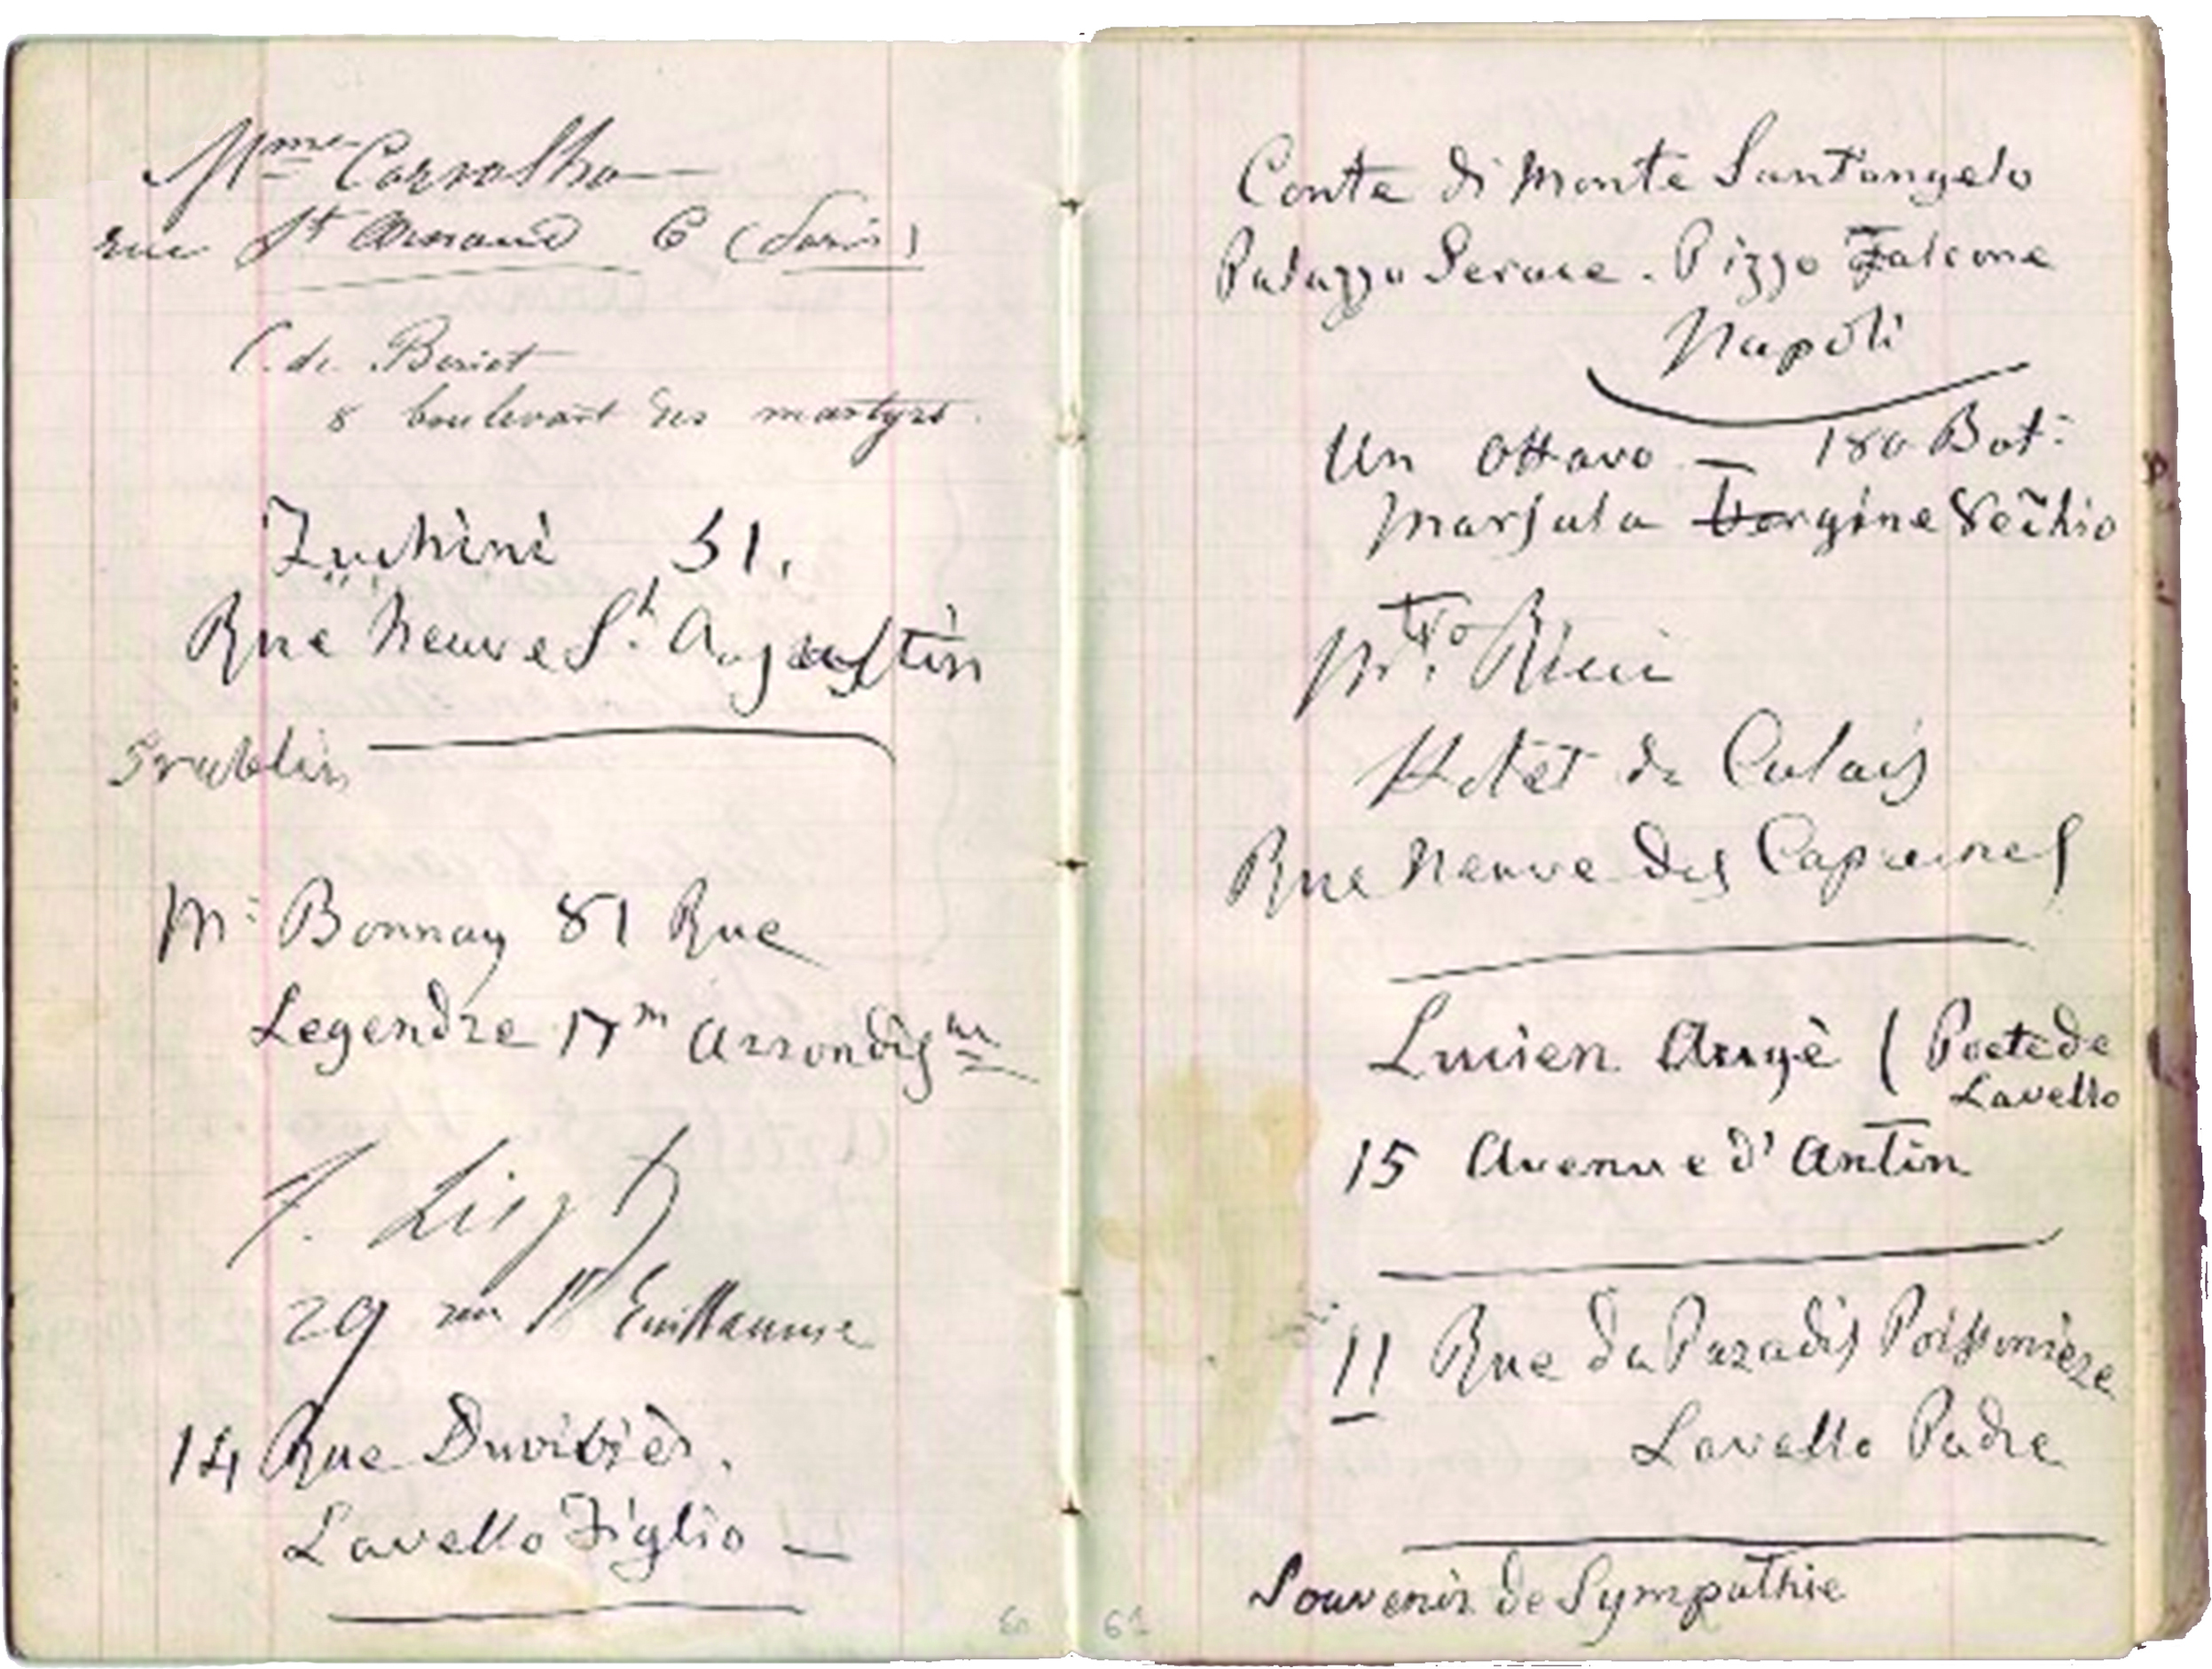 Mme Carvalho
rue St Arnaud 6 (Paris)
C. de Beriot
8 boulevart des martyrs.
Zuchini 51.
Rue Neuve St. Augaustin
M: Bonnay 81 Rue
Legendre 17m Arrondis
F. Liszt
29 rue St Guillaume
14 Rue Duvivièr.
Lavello Figlio —
60
Conte di Monte Sant'angelo
Palazzo Serace. Pizzo Falcone
Napoli
Un Ottavo — 180 Bot:
Marsala Vergine Vechio
Mtro. Ricci
Hotet de Calais
Rue Neuve des Capucines
Lucien Augè ( Poete de
Lavello
15 Avenue d'Antin
11 Rue du Paradis Poissonièze
Lavello Padre
Souvenir de Sympathie
61